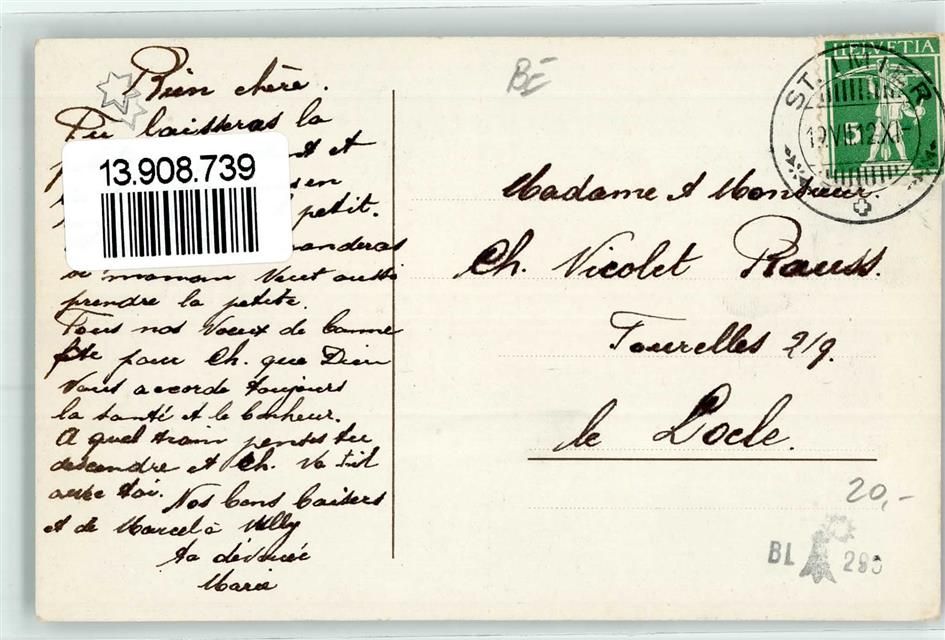 Bien chère.
Tu laisseras la
et
en
petit.
manderas
si maman veut aussi
prendre la petite.
Tous nos voeux de bonne
fête pour Ch. que Dieu
vous accorde toujours
la santé et le bonheur.
A quel train penses tu
descendre et Ch. va t'il
avec toi. Nos bons baisers
et de Marcel à Willy
ta dévouée
Marie
13.908.739
BE
HELVETIA
5
ST. IMIER
19.VII.12.XI-
Madame et Monsieur.
Ch. Nicolet Rauss.
Tourelles 2/9.
le Locle.
20,-
BL 290